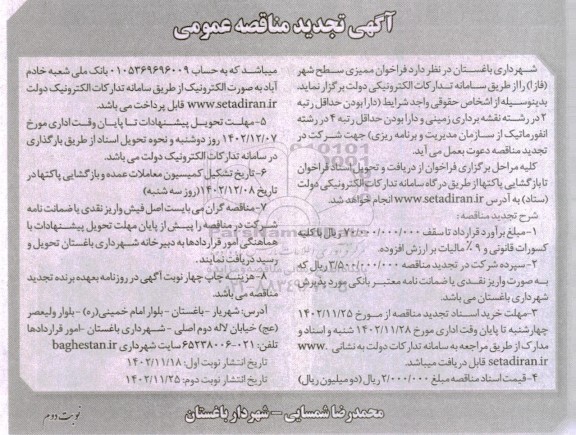 آگهی تجدید مناقصه عمومی
شهرداری باغستان در نظر دارد فراخوان ممیزی سطح شهر
(فاز۱) را از طریق سامانه تدارکات الکترونیکی دولت برگزار نماید.
بدینوسیله از اشخاص حقوقی واجد شرایط (دارا بودن حداقل رتبه
۲ در رشته نقشه برداری زمینی و دارا بودن حداقل رتبه ۴ در رشته
انفورماتیک از سازمان مدیریت و برنامه ریزی) جهت شرکت در
تجدید مناقصه دعوت بعمل می آید.
کلیه مراحل برگزاری فراخوان از دریافت و تحویل اسناد فراخوان
تا بازگشایی پاکتها از طریق درگاه سامانه تدارکات الکترونیکی دولت
(ستاد) به آدرس www.setadiran.ir انجام خواهد شد.
شرح تجدید مناقصه:
۱-مبلغ برآورد قرارداد تا سقف ۷۰/۰۰۰/۰۰۰/۰۰۰ ریال با کلیه
کسورات قانونی و ۹٪ مالیات بر ارزش افزوده.
۲-سپرده شرکت در تجدید مناقصه ۳/۵۰۰/۰۰۰/۰۰۰ ریال که
به صورت واریز نقدی یا ضمانت نامه معتبر بانکی مورد پذیرش
شهرداری باغستان می باشد.
۳-مهلت خرید اسناد تجدید مناقصه از مورخ ۱۴۰۲/۱۱/۲۵
چهارشنبه تا پایان وقت اداری مورخ ۱۴۰۲/۱۱/۲۸ شنبه و اسناد و
مدارک از طریق مراجعه به سامانه تدارکات دولت به نشانی www.
setadiran.ir قابل دریافت میباشد.
۴-قیمت اسناد مناقصه مبلغ ۲/۰۰۰/۰۰۰ ریال (دو میلیون ریال)
میباشد که به حساب ۰۱۰۵۳۶۹۶۹۶۰۰۹ بانک ملی شعبه خادم
آباد به صورت الکترونیک از طریق سامانه تدارکات الکترونیک دولت
www.setadiran.ir قابل پرداخت می باشد.
۵-مهلت تحویل پیشنهادات تا پایان وقت اداری مورخ
۱۴۰۲/۱۲/۰۷ روز دوشنبه و نحوه تحویل اسناد از طریق بارگذاری
در سامانه تدارکات الکترونیک دولت می باشد.
۶-تاریخ تشکیل کمیسیون معاملات عمده و بازگشایی پاکتها در
تاریخ ۱۴۰۲/۱۲/۰۸(روز سه شنبه)
۷-مناقصه گران می بایست اصل فیش واریز نقدی یا ضمانت نامه
شرکت در مناقصه را پیش از پایان مهلت تحویل پیشنهادات با
هماهنگی امور قراردادها به دبیرخانه شهرداری باغستان تحویل و
رسید دریافت نمایند.
۸-هزینه چاپ چهار نوبت آگهی در روزنامه بعهده برنده تجدید
مناقصه می باشد.
آدرس: شهریار -باغستان - بلوار امام خمینی(ره) -بلوار ولیعصر
(عج) خیابان لاله دوم اصلی - شهرداری باغستان -امور قراردادها
تلفن: ۰۲۱-۶۵۲۳۸۰۰۶ سایت شهرداری baghestan.ir
تاریخ انتشار نوبت اول: ۱۴۰۲/۱۱/۱۸
تاریخ انتشار نوبت دوم: ۱۴۰۲/۱۱/۲۵
محمدرضا شمسایی – شهردار باغستان
نوبت دوم